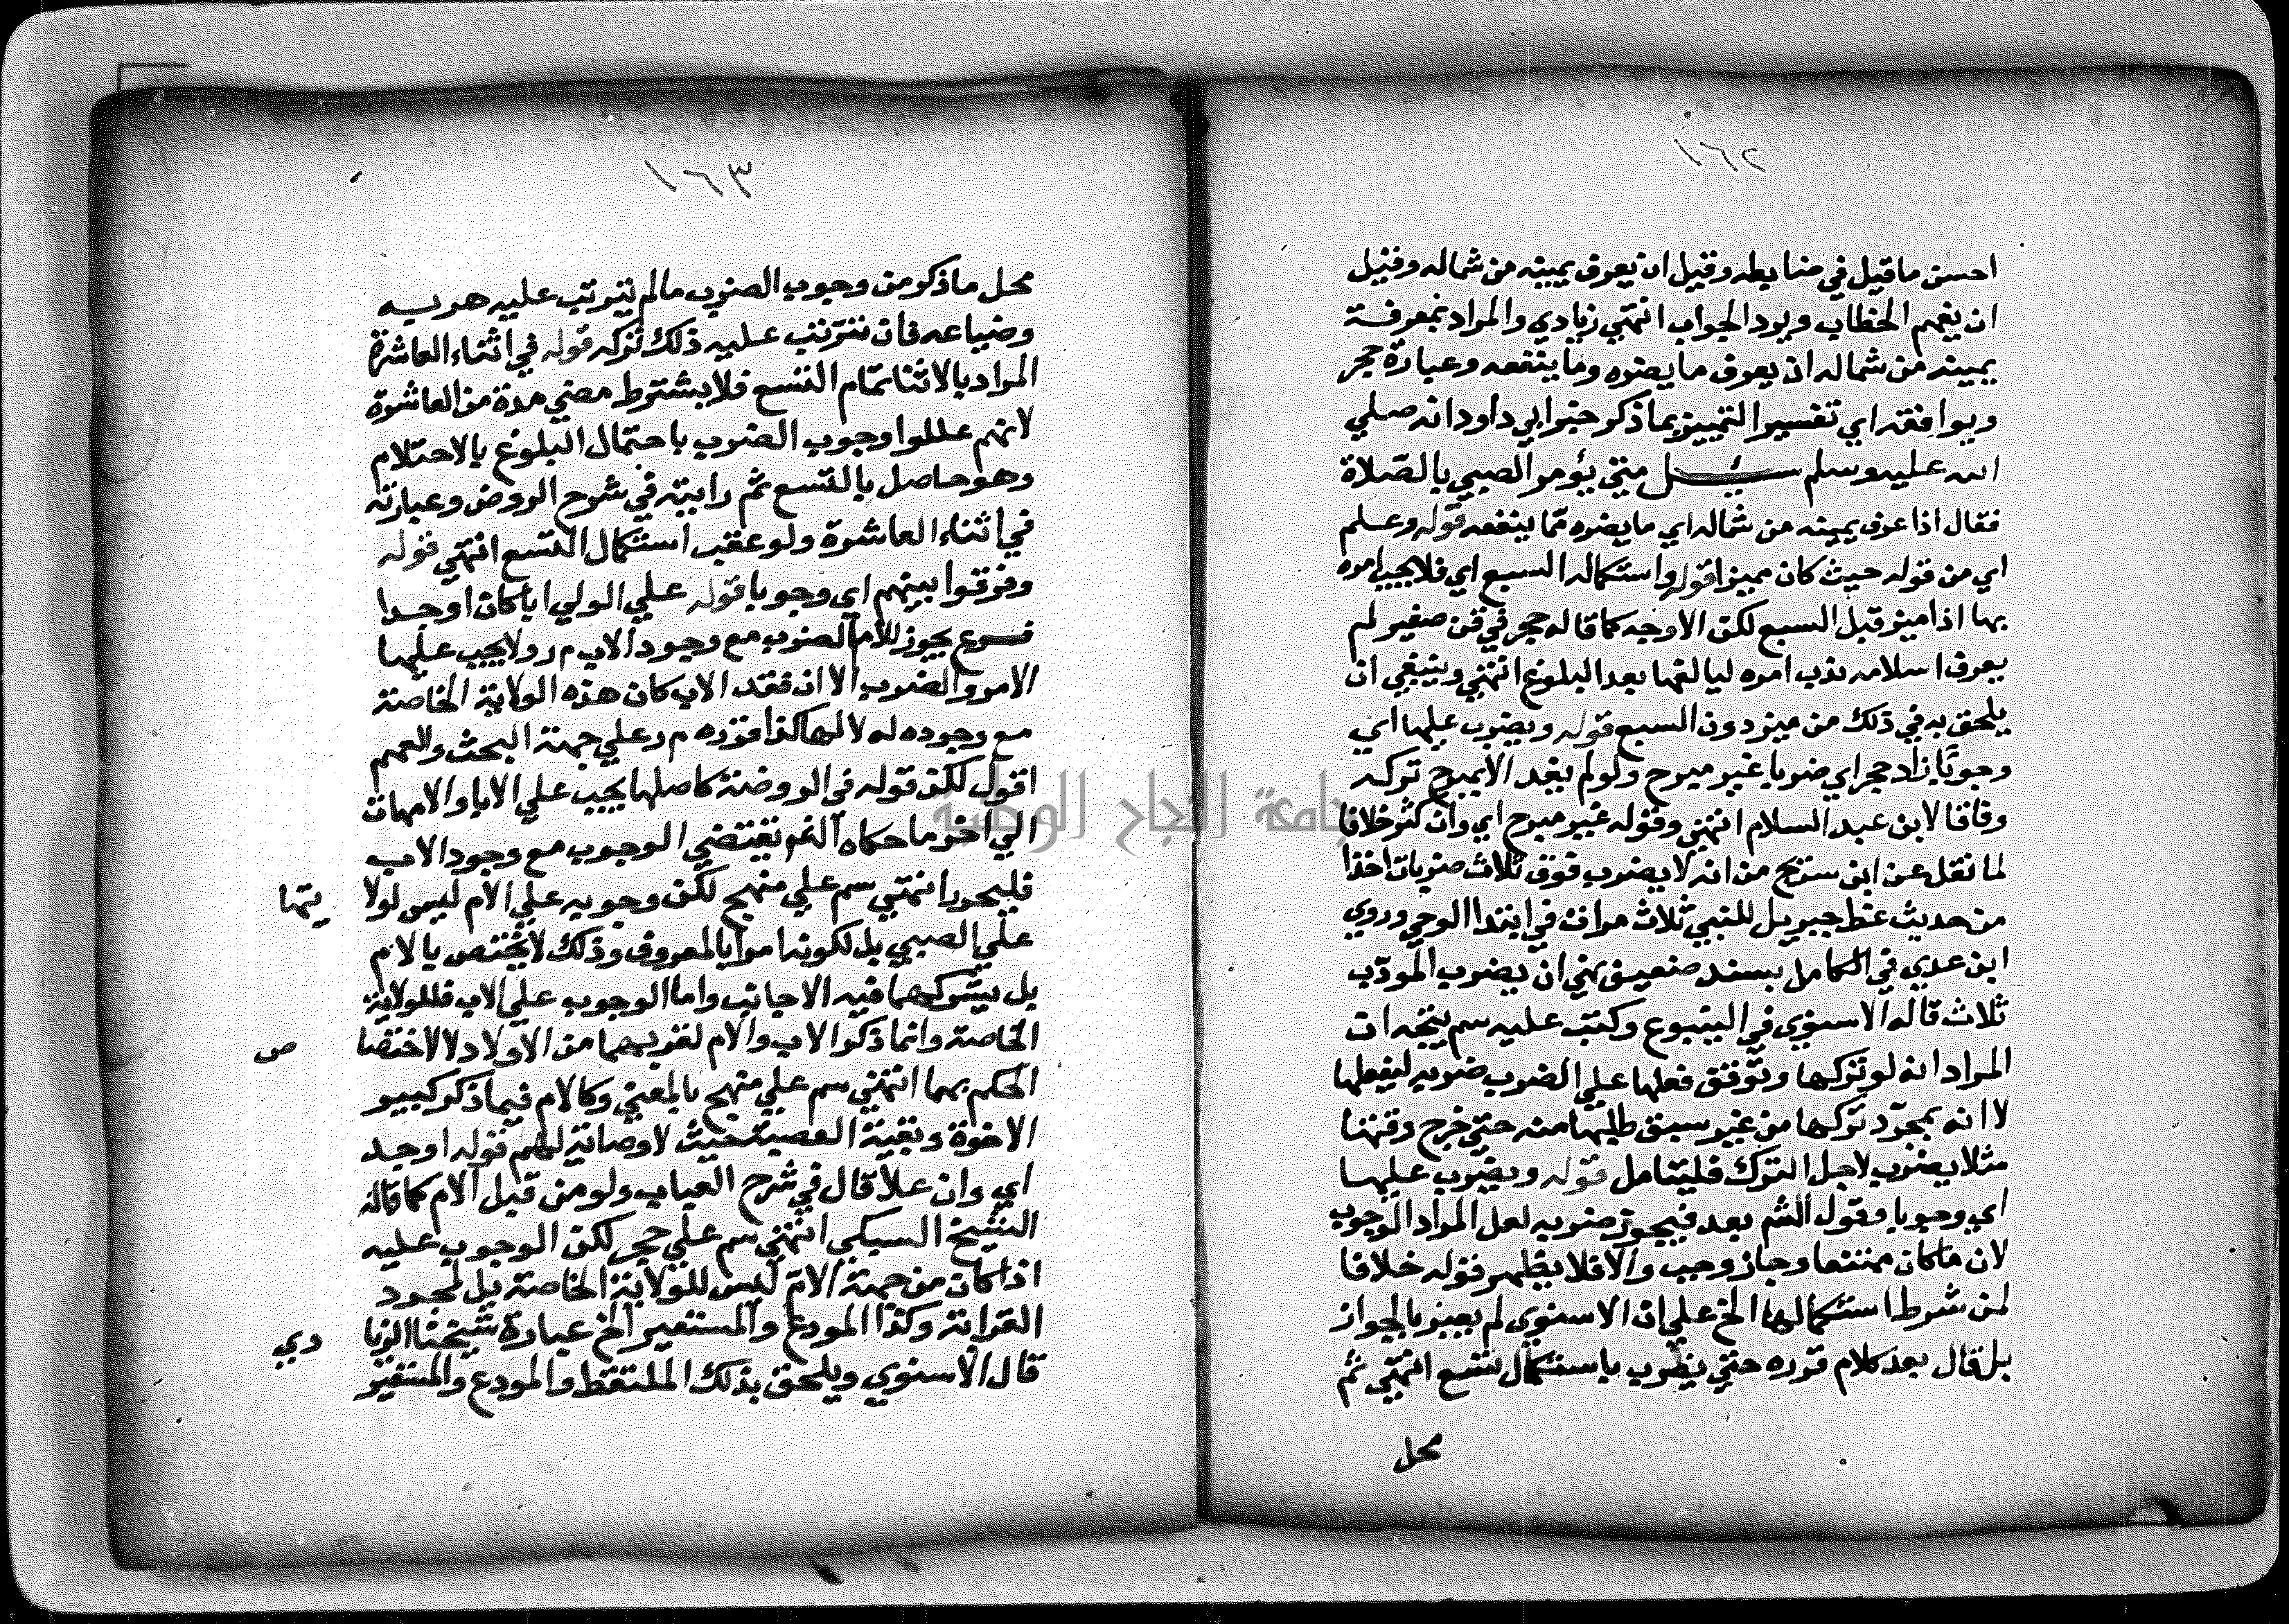 ١٦٢
احسن ما قيل في ضابطه وقيل ان يعرف يمينه من شماله وقيل
ان يفهم الخطاب ويرد الجواب انتهي زيادي والمراد بمعرفة
يمينه من شماله ان يعرف ما يضره وما ينفعه وعبارة حجر
ويوافقه اي تفسير التمييز بما ذكر خبر ابي داود انه صلي
الله عليه وسلم سئل متي يؤمر الصبي بالصلاة
فقال اذا عرف يمينه من شماله اي ما يضره مما ينفعه قوله وعلم
اي من قوله حيث كان مميزا قوله واستكماله السبع اي فلا يجب امره
بها اذا ميز قبل السبع لكن الاوجه كما قاله حجر في قن صغير لم
يعرف اسلامه ندب امره ليالفها بعد البلوغ انتهي وينبغي ان
يلحق به في ذلك من ميز دون السبع قوله ويضرب عليها اي
وجوبا زاد حجر اي ضربا غير مبرح ولو لم يفد الا يبرح تركه
وفاقا لابن عبد السلام انتهي وقوله غير مبرح اي وان كثر خلافا
لما نقل عن ابن سريج من انه لا يضرب فوق ثلاث ضربات اخذا
من حديث غط جبريل للنبي ثلاث مرات في ابتدا الوحي وروي
ابن عدي في الكامل بسند ضعيف نهي ان يضرب المودب
ثلاث قاله الاسنوي في الينبوع وكتب عليه سم يتجه ان
المراد انه لو تركها وتوقف فعلها علي الضرب ضربه ليفعلها
لا انه بمجرد تركها من غير سبق طلبها منه حتي خرج وقتها
مثلا يضرب لاجل الترك فليتامل قوله ويضرب عليها
اي وجوبا وقول الشم بعد فيجوز ضربه لعل المراد الوجوب
لان ما كان ممتنعا وجاز وجب والا فلا يظهر قوله خلافا
لمن شرط استكمالها الخ علي ان الاسنوي لم يعبر بالجواز
بل قال بعد كلام قرره حتي يضرب باستكمال تسع انتهي ثم
محل
١٦٣
محل ما ذكر من وجوب الضرب ما لم يترتب عليه هربه
وضياعه فان ترتب عليه ذلك تركه قوله في اثناء العاشرة
المراد بالاثنا تمام التسع فلا يشترط مضي مدة من العاشرة
لانهم عللوا وجوب الضرب باحتمال البلوغ بالاحتلام
وهو حاصل بالتسع ثم رايته في شرح الروض وعبارته
في اثناء العاشرة ولو عقب استكمال التسع انتهي قوله
وفرقوا بينهم اي وجوبا قوله علي الولي ابا كان او جدا
فـرع يجوز للام الضرب مع وجود الاب م ر ولا يجب عليها
الامر والضرب الا ان فقد الاب كان هذه الولاية الخاصة
مع وجوده له لا لها كذا قرره م ر علي جهة البحث والفهم
اقول لكن قوله في الروضة كاصلها يجب علي الابا والامهات
الي اخر ما حكاه الشم تقتضي الوجوب مع وجود الاب
فليحرر انتهي سم علي منهج لكن وجوبه علي الام ليس لولا يتها
علي الصبي بل لكونه امرا بالمعروف وذلك لا يختص بالام
بل يشركهما فيه الاجانب واما الوجوب علي الاب فللولاية
الخاصة وانما ذكر الاب والام لقربهما من الاولاد لا لاختصا ص
الحكم بهما انتهي سم علي منهج بالمعني وكالام فيما ذكر كبير
الاخوة وبقية العصبة حيث لا وصاية لهم قوله او جد
اي وان علا قال في شرح العباب ولو من قبل الام كما قاله
الشيخ السبكي انتهي سم علي حجر لكن الوجوب عليه
اذا كان من جهة الام ليس للولاية الخاصة بل لمجرد
القرابة وكذا المودع والمستعير الخ عبارة شيخنا الزيا دي
قال الاسنوي ويلحق بذلك الملتقط والمودع والمستعير
جامعة النجاح الوطنية